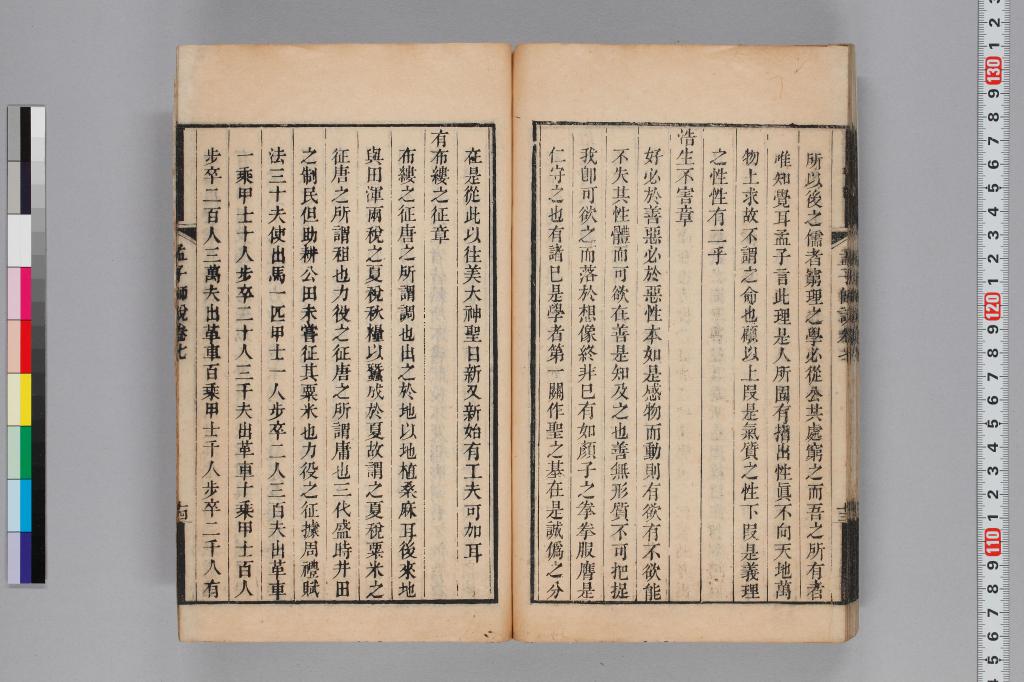 所以後之儒者窮理之學必從公共處窮之而吾之所有者
唯知覺耳孟子言此理是人所固有指出性眞不向天地萬
物上求故不謂之命也顧以上段是氣質之性下段是義理
之性性有二乎
浩生不害章
好必於善惡必於惡性本如是感物而動則有欲有不欲能
不失其性體而可欲在善是知及之也善無形質不可把捉
我卽可欲之而落於想像終非已有如顏子之拳拳服膺是
仁守之也有諸已是學者第一關作聖之基在是誠僞之分
在是從此以往美大神聖日新又新始有工夫可加耳
有布縷之征章
布縷之征唐之所謂調也出之於地以地植桑麻耳後來地
與田渾兩稅之夏稅秋糧以蠶成於夏故謂之夏稅粟米之
征唐之所謂租也力役之征唐之所謂庸也三代盛時井田
之制民但助耕公田未嘗征其粟米也力役之征據周禮賦
法三十夫使出馬一匹甲士一人步卒二人三百夫出革車
一乘甲士十人步卒二十人三千夫出革車十乘甲士百人
步卒二百人三萬夫出革車百乘甲士千人步卒二千人有
孟子師說卷七
十四